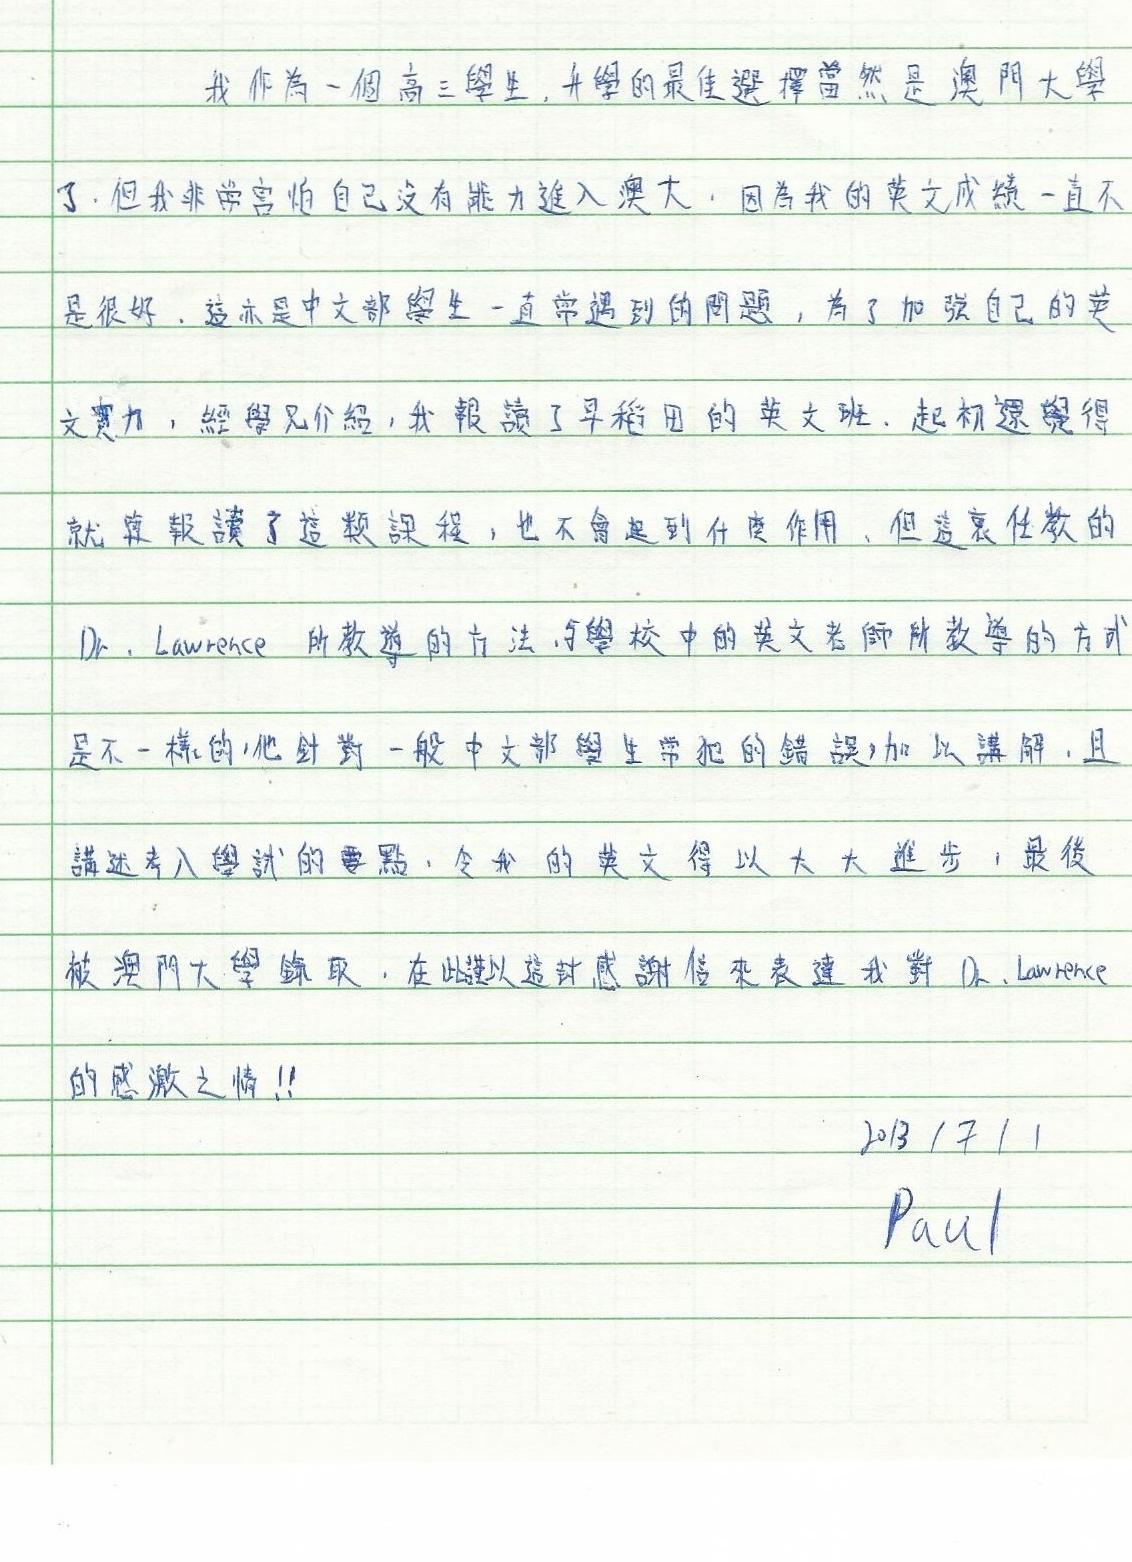 我作為一個高三學生，升學的最佳選擇當然是澳門大學
了．但我非常害怕自己沒有能力進入澳大，因為我的英文成績一直不
是很好．這亦是中文部學生一直常遇到的問題，為了加強自己的英
文實力，經學兄介紹，我報讀了早稻田的英文班．起初還覺得
就算報讀了這類課程，也不會起到什麼作用、但這裏任教的
Dr. Lawrence 所教導的方法，與學校中的英文老師所教導的方式
是不一樣的，他針對一般中文部學生常犯的錯誤，加以講解．且
講述考入學試的要點，令我的英文得以大大進步，最後
被澳門大學錄取．在此謹以這封感謝信來表達我對Dr. Lawrence
的感激之情!!
2013/7/1
Paul